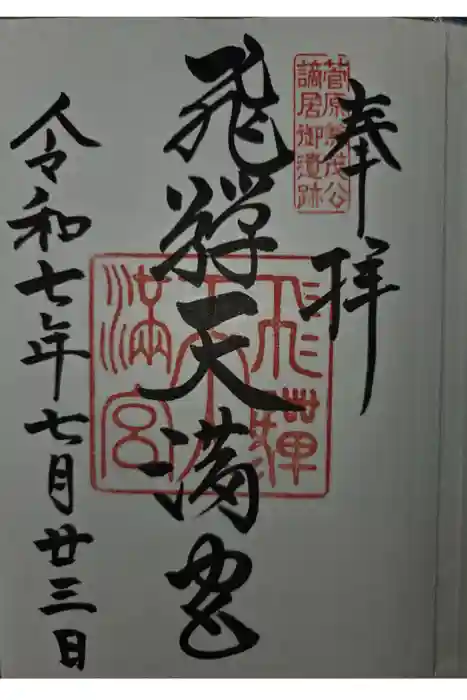 奉拝
菅原兼茂公
謫居御遺跡
飛騨天満宮
飛騨天満宮
令和七年七月廿三日